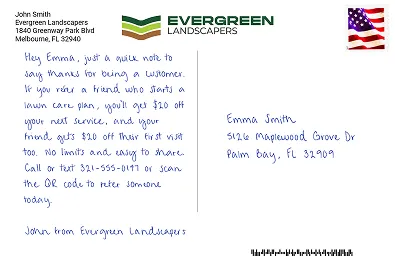 John Smith
Evergreen Landscapers
1840 Greenway Park Blvd
Melbourne, FL 32940
EVERGREEN
LANDSCAPERS
Hey Emma, just a quick note to
say thanks for being a customer.
If you refer a friend who starts a
lawn care plan, you'll get $20 off
your next service, and your
friend gets $20 off their first visit
too. No limits and easy to share.
Call or text 321-555-0197 or scan
the QR code to refer someone
today.
John from Evergreen Landscapers
Emma Smith
5126 Maplewood Grove Dr
Palm Bay, FL 32909